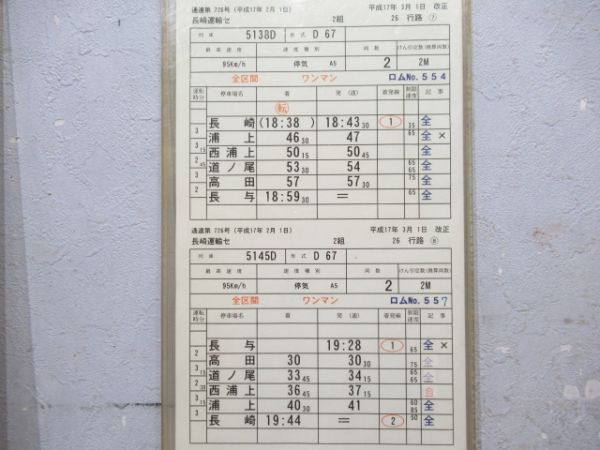 通達第 728号 (平成17年 2月 1日) 平成17年 3月 1日 改正
長崎運輸セ 2組 26 行路 ⑦
列車 5138D 形式 D 67
最高速度 速度種別 両数 けん引定数(換算両数)
95Km/h 停気 A5 2 2M
全区間 ワンマン ロムNo. 554
運転時分 停車場名 着 発(通) 着発線 制限速度 記事
転
長崎 (18:38 ) 18:43 30 1 35 全
3 浦上 46 30 47 65 全 ×
3 15 西浦上 50 15 50 45 全
2 45 道ノ尾 53 30 54 65 全
3 高田 57 57 30 65 75 全
2 長与 18:59 30 = 全
通達第 728号 (平成17年 2月 1日) 平成17年 3月 1日 改正
長崎運輸セ 2組 26 行路 ⑧
列車 5145D 形式 D 67
最高速度 速度種別 両数 けん引定数(換算両数)
95Km/h 停気 A5 2 2M
全区間 ワンマン ロムNo. 557
運転時分 停車場名 着 発(通) 着発線 制限速度 記事
長与 19:28 1 65 全 ×
2 高田 30 30 30 75 全
3 15 道ノ尾 33 45 34 15 65 65 全
2 30 西浦上 36 45 37 15
3 15 浦上 40 30 41 60 85 全
3 長崎 19:44 = 2 50 全